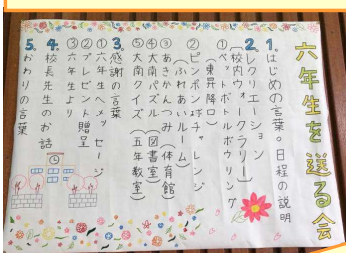 六年生を送る会
1.はじめの言葉。日程の説明
2.レクリエーション
(校内ウォークラリー)
①ペットボトルボウリング
(東昇降口)
②ピンポン球チャレンジ
(ふれあいルーム)
③あきかんつみ(体育館)
④大南パズル(図書室)
⑤大南クイズ(五年教室)
3.感謝の言葉
①六年生へメッセージ
②プレゼント贈呈
③六年生より
4.校長先生のお話
5.おわりの言葉